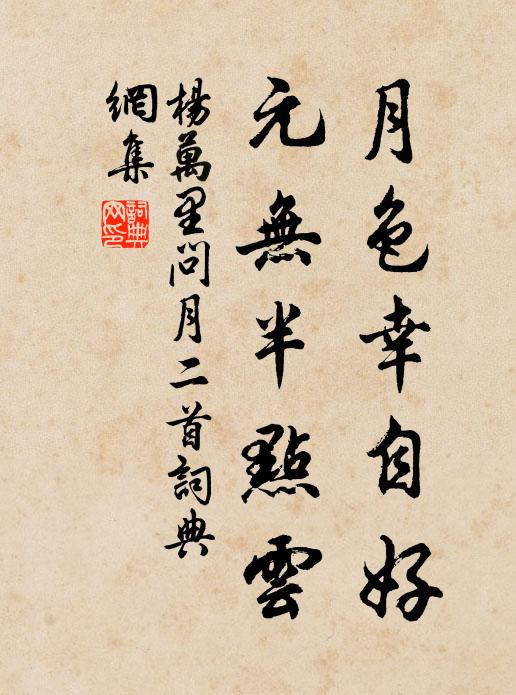 月色幸自好
元無半點雲
楊萬里問月二首詞典
網集
詞典
網印